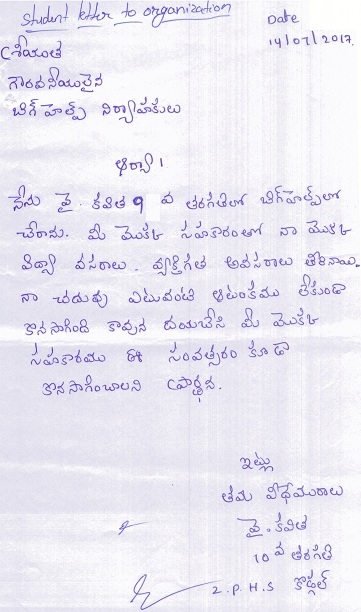 student letter to organization
Date
14/07/2017
శ్రీయుత
గౌరవనీయులైన
బిగ్ హెల్ప్ నిర్వాహకులు
ఆర్యా!
నేను వై. కవిత 9 వ తరగతిలో బిగ్ హెల్ప్ లో
చేరాను. మీ మొక్క సహకారంతో నా మొక్క
విద్యా వసరాలు. వ్యక్తిగత అవసరాలు తీరినాయి.
నా చదువు ఎటువంటి ఆటంకము లేకుండా
కొనసాగింది కావున దయచేసి మీ మొక్క
సహకారము ఈ సంవత్సరం కూడా
కొనసాగించాలని ప్రార్థన.
ఇట్లు
తమ విధేయురాలు
వై. కవిత
10 వ తరగతి
Z.P.H.S కొడ్గల్